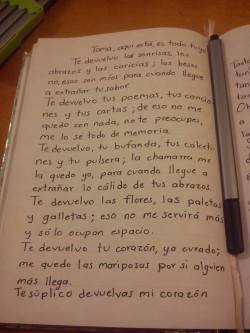 Toma, aquí está, es todo tuyo
Te devuelvo las sonrisas, los
abrazos y las caricias; los besos
no, esos son míos para cuando llegue
a extrañar tu sabor.
Te devuelvo tus poemas, tus cancio
nes y tus cartas; de eso no me
quedo con nada, no te preocupes,
me lo sé todo de memoria.
Te devuelvo, tu bufanda, tus calceti-
nes y tu pulsera; la chamarra me
la quedo yo, para cuando llegue a
extrañar lo cálido de tus abrazos.
Te devuelvo las flores, las paletas
y galletas; eso no me servirá más
y sólo ocupan espacio.
Te devuelvo tu corazón, ya curado;
me quedo las mariposas por si alguien
más llega.
Te súplico devuelvas mi corazón